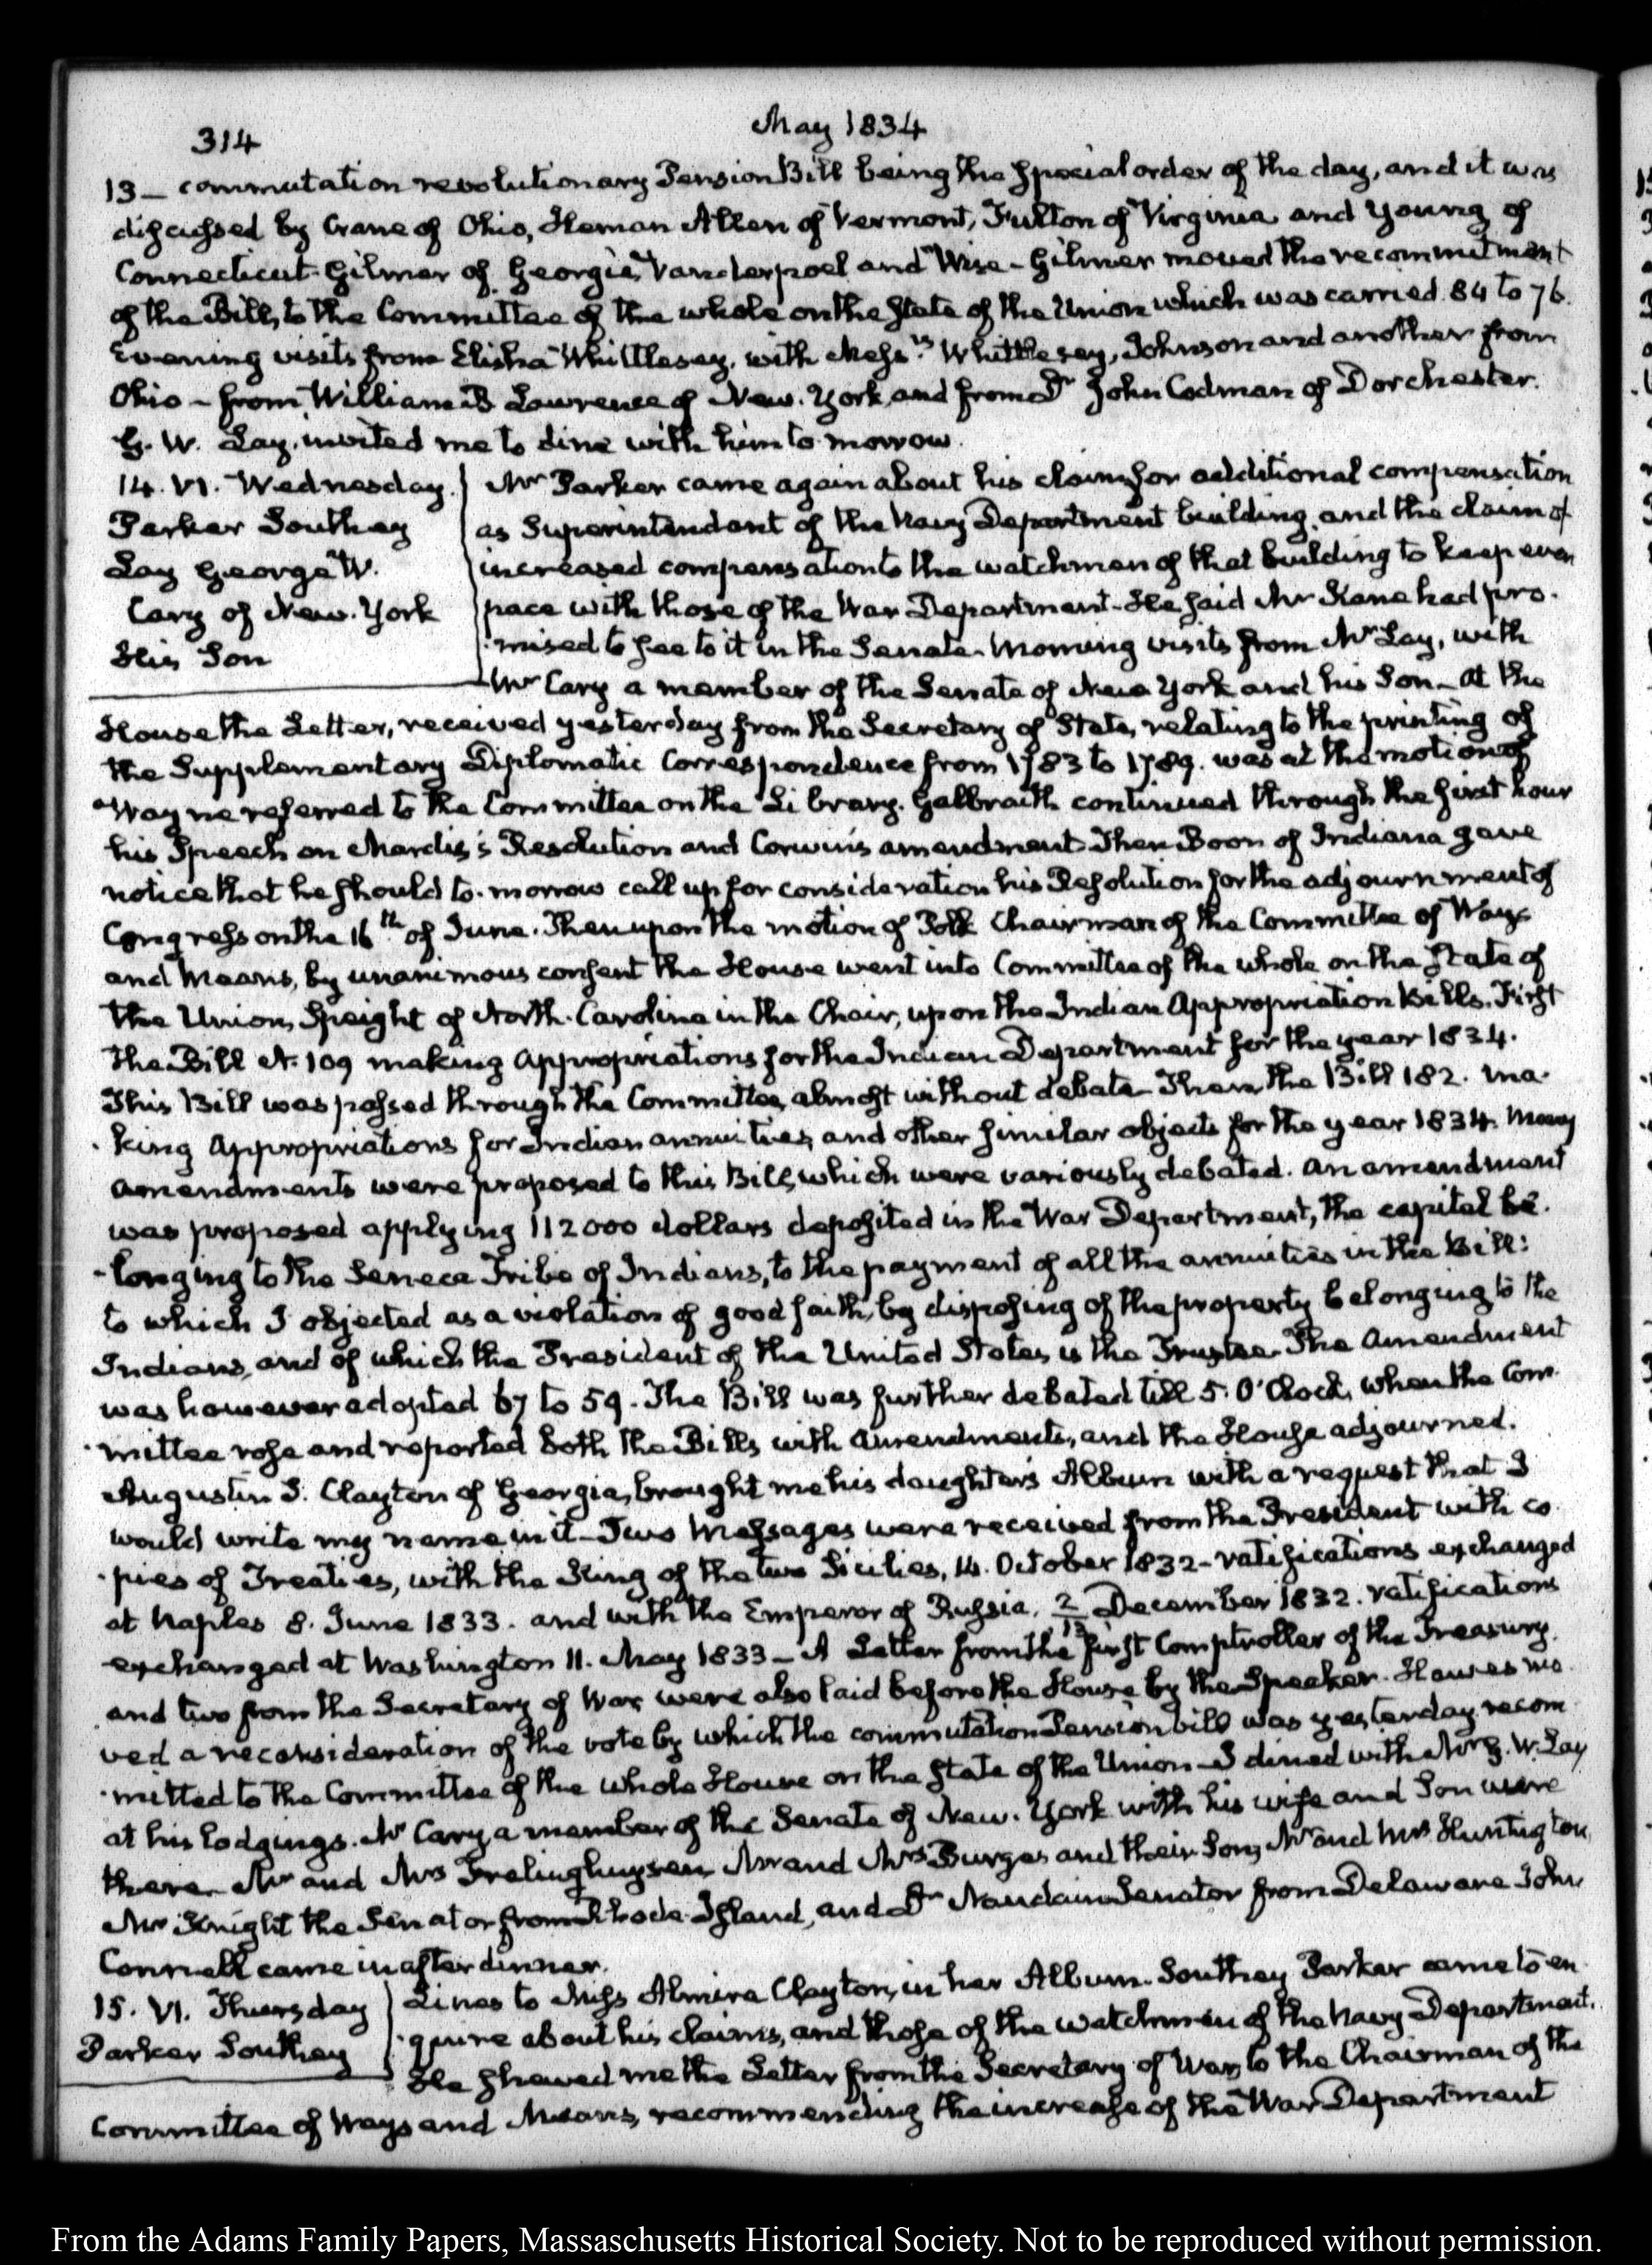 314
May 1834
13 – commutation revolutionary Pension Bill being the special order of the day, and it was
discussed by Crane of Ohio, Heman Allen of Vermont, Fulton of Virginia and Young of
Connecticut. Gilmer of Georgia, Vanderpoel and Wise – Gilmer moved the recommitment
of the Bill, to the Committee of the whole on the State of the Union which was carried 84 to 76.
Evening visits from Elisha Whittlesey, with Messrs Whittlesey, Johnson and another from
Ohio – from William B Lawrence of New-York, and from Dr John Codman of Dorchester.
G. W. Lay, invited me to dine with him to-morrow.
14. VI. Wednesday.
Parker Southey
Lay George W.
Cary of New-York
His Son
Mr Parker came again about his claim for additional compensation
as Superintendent of the Navy Department building, and the claim of
increased compensation to the watchmen of that building to keep even
pace with those of the War Department – He said Mr Kane had pro-
-mised to see to it in the Senate. Morning visits from Mr Lay, with
Mr Cary a member of the Senate of New York and his Son – At the
House the Letter, received yesterday from the Secretary of State, relating to the printing of
the Supplementary Diplomatic Correspondence from 1783 to 1789. was at the motion of
Wayne referred to the Committee on the Library. Galbraith continued through the first hour
his Speech on Mardis's Resolution and Corwin's amendment. Then Boon of Indiana gave
notice that he should to-morrow call up for consideration his Resolution for the adjournment of
Congress on the 16th of June. Then upon the motion of Polk Chairman of the Committee of Ways
and Means, by unanimous consent the House went into Committee of the whole on the State of
the Union, Speight of North-Carolina in the Chair, upon the Indian Appropriation Bills. First
the Bill N. 109 making appropriations for the Indian Department for the year 1834.
This Bill was passed through the Committee, almost without debate. Then the Bill 182. ma-
-king Appropriations for Indian annuities, and other similar objects for the year 1834. Many
amendments were proposed to this Bill, which were variously debated. An amendment
was proposed applying 112000 dollars deposited in the War Department, the capital be-
-longing to the Seneca Tribe of Indians, to the payment of all the annuities in the Bill:
to which I objected as a violation of good faith, by disposing of the property belonging to the
Indians, and of which the President of the United States is the Trustee. The Amendment
was however adopted 67 to 59. The Bill was further debated till 5. O'Clock, when the Com-
-mittee rose and reported both the Bills with amendments, and the House adjourned.
Augustin S. Clayton of Georgia, brought me his daughter's Album with a request that I
would write my name in it – Two Messages were received from the President with co-
-pies of Treaties, with the King of the two Sicilies, 14. October 1832 – ratifications exchanged
at Naples 8. June 1833. and with the Emperor of Russia, 2/13 December 1832. ratifications
exchanged at Washington 11. May 1833 – A Letter from the first Comptroller of the Treasury.
and two from the Secretary of War were also laid before the House by the Speaker. Hawes mo-
ved a reconsideration of the vote by which the commutation Pension bill was yesterday recom-
-mitted to the Committee of the whole House on the State of the Union – I dined with Mr G. W. Lay
at his lodgings. Mr Cary, a member of the Senate of New-York with his wife and Son were
there. Mr and Mrs Frelinghuysen, Mr and Mrs Burges and their Son, Mr and Mrs Huntington,
Mr Knight the Senator from Rhode-Island, and Dr Naudain Senator from Delaware. John
Connell came in after dinner.
15. VI. Thursday
Parker Southey
Lines to Miss Almira Clayton, in her Album. Southey Parker came to en-
-quire about his claims, and those of the watchmen of the Navy Department.
He shewed me the Letter from the Secretary of War, to the Chairman of the
Committee of Ways and Means, recommending the increase of the War Department
From the Adams Family Papers, Massaschusetts Historical Society. Not to be reproduced without permission.